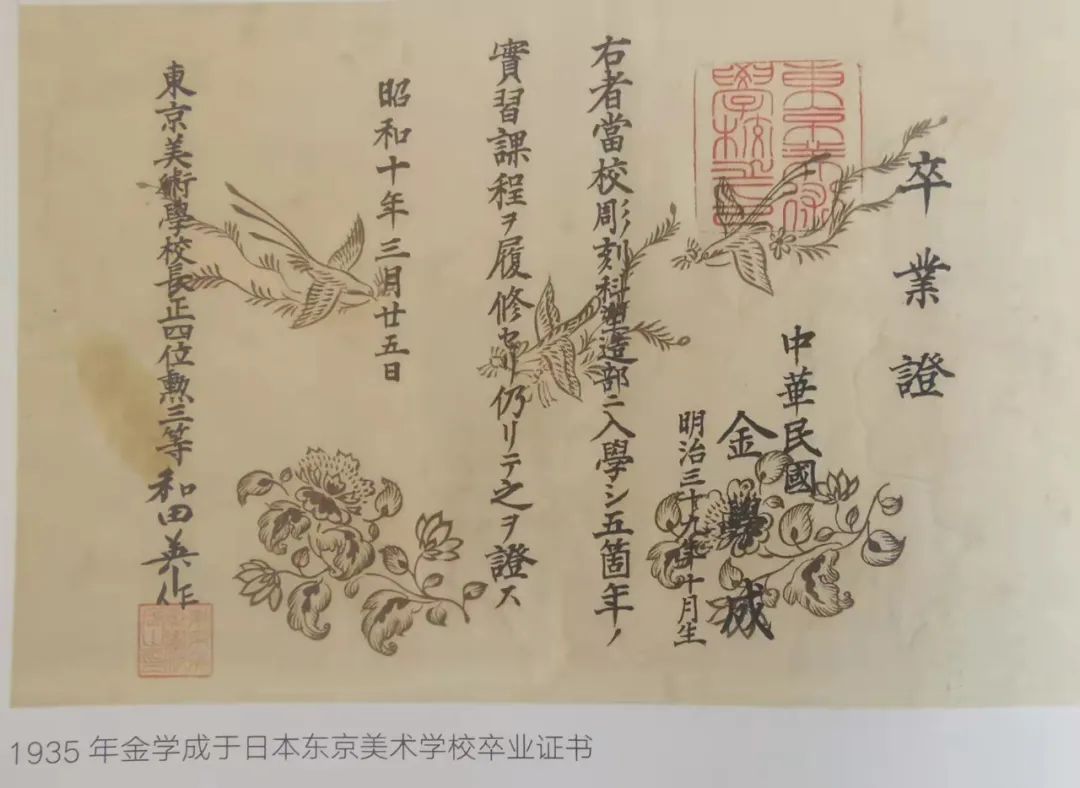 卒業證
中華民國
金學成
明治三十九年十月生
右者當校彫刻科塑造部ニ入學シ五箇年ノ
實習課程ヲ履修セリ仍リテ之ヲ證ス
昭和十年三月廿五日
東京美術學校長正四位勲三等和田英作
1935 年金学成于日本东京美术学校卒业证书